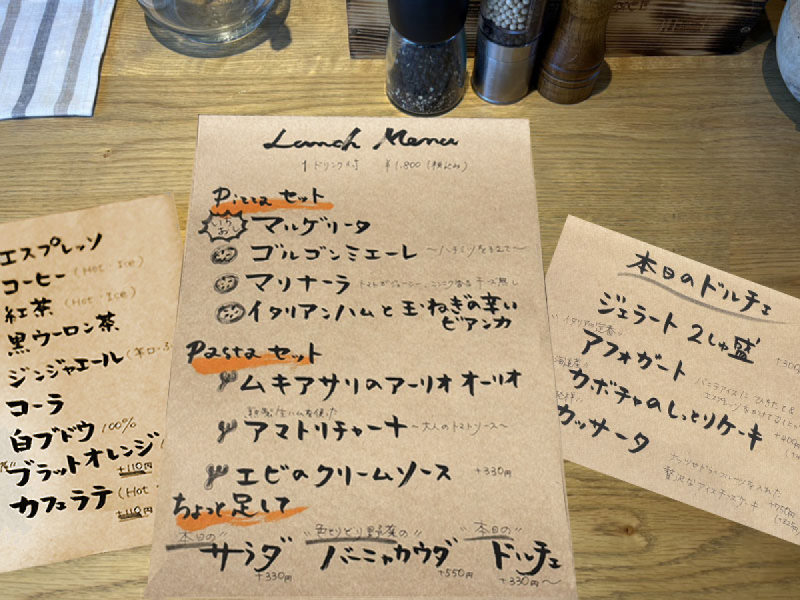 Lunch Menu
1ドリンク付 ¥1,800（税込み）
Pizza セット
いちおし マルゲリータ
ゴルゴンミエーレ ～ハチミツを立て～
マリナーラ チーズ無し
イタリアンハムと玉ねぎの辛い
ビアンカ
Pasta セット
ムキアサリのアーリオオーリオ
自家製生ハムを使った
アマトリチャーナ ～大人のトマトソース～
エビのクリームソース +330円
ちょっと足して
"本日の"
サラダ
+330円
"色とりどり野菜の"
バーニャカウダ
+550円
"本日の"
ドルチェ
+330円～
エスプレッソ
コーヒー (Hot・Ice)
紅茶 (Hot・Ice)
黒ウーロン茶
ジンジャエール
コーラ
白ブドウ 100%
ブラットオレンジ
+110円
カフェラテ (Hot・
+110円
本日のドルチェ
ジェラート 2しゅ盛
イタリアの定番
アフォガート
カボチャのしっとりケーキ
カッサータ
贅沢なアイスチーズケーキ